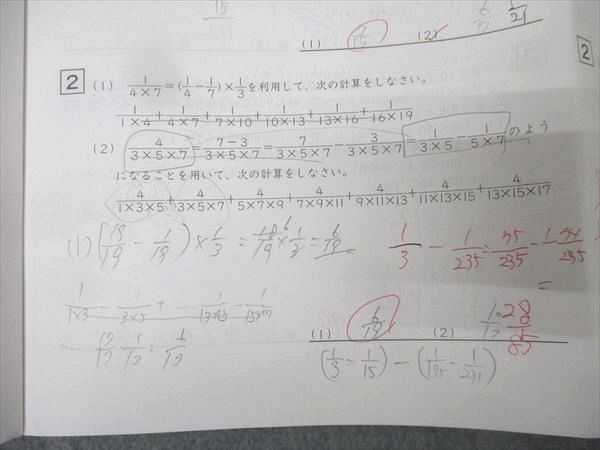 (1) 6/15 (2)
6/7 1/21
2 (1) 1/4×7=(1/4-1/7)×1/3を利用して、次の計算をしなさい。
1/1×4+1/4×7+1/7×10+1/10×13+1/13×16+1/16×19
(2) 4/3×5×7=7-3/3×5×7=7/3×5×7-3/3×5×7=1/3×5-1/5×7のよう
になることを用いて、次の計算をしなさい。
4/1×3×5+4/3×5×7+4/5×7×9+4/7×9×11+4/9×11×13+4/11×13×15+4/13×15×17
(1) (19/19-1/19)×1/3=18/19×1/3=6/19
1/3-1/235=75/235-1
=
1/1×3-1/3×5+
(1) 6/19 (2) 28/85
(1/3-1/15)-(1/195-1/231)
2